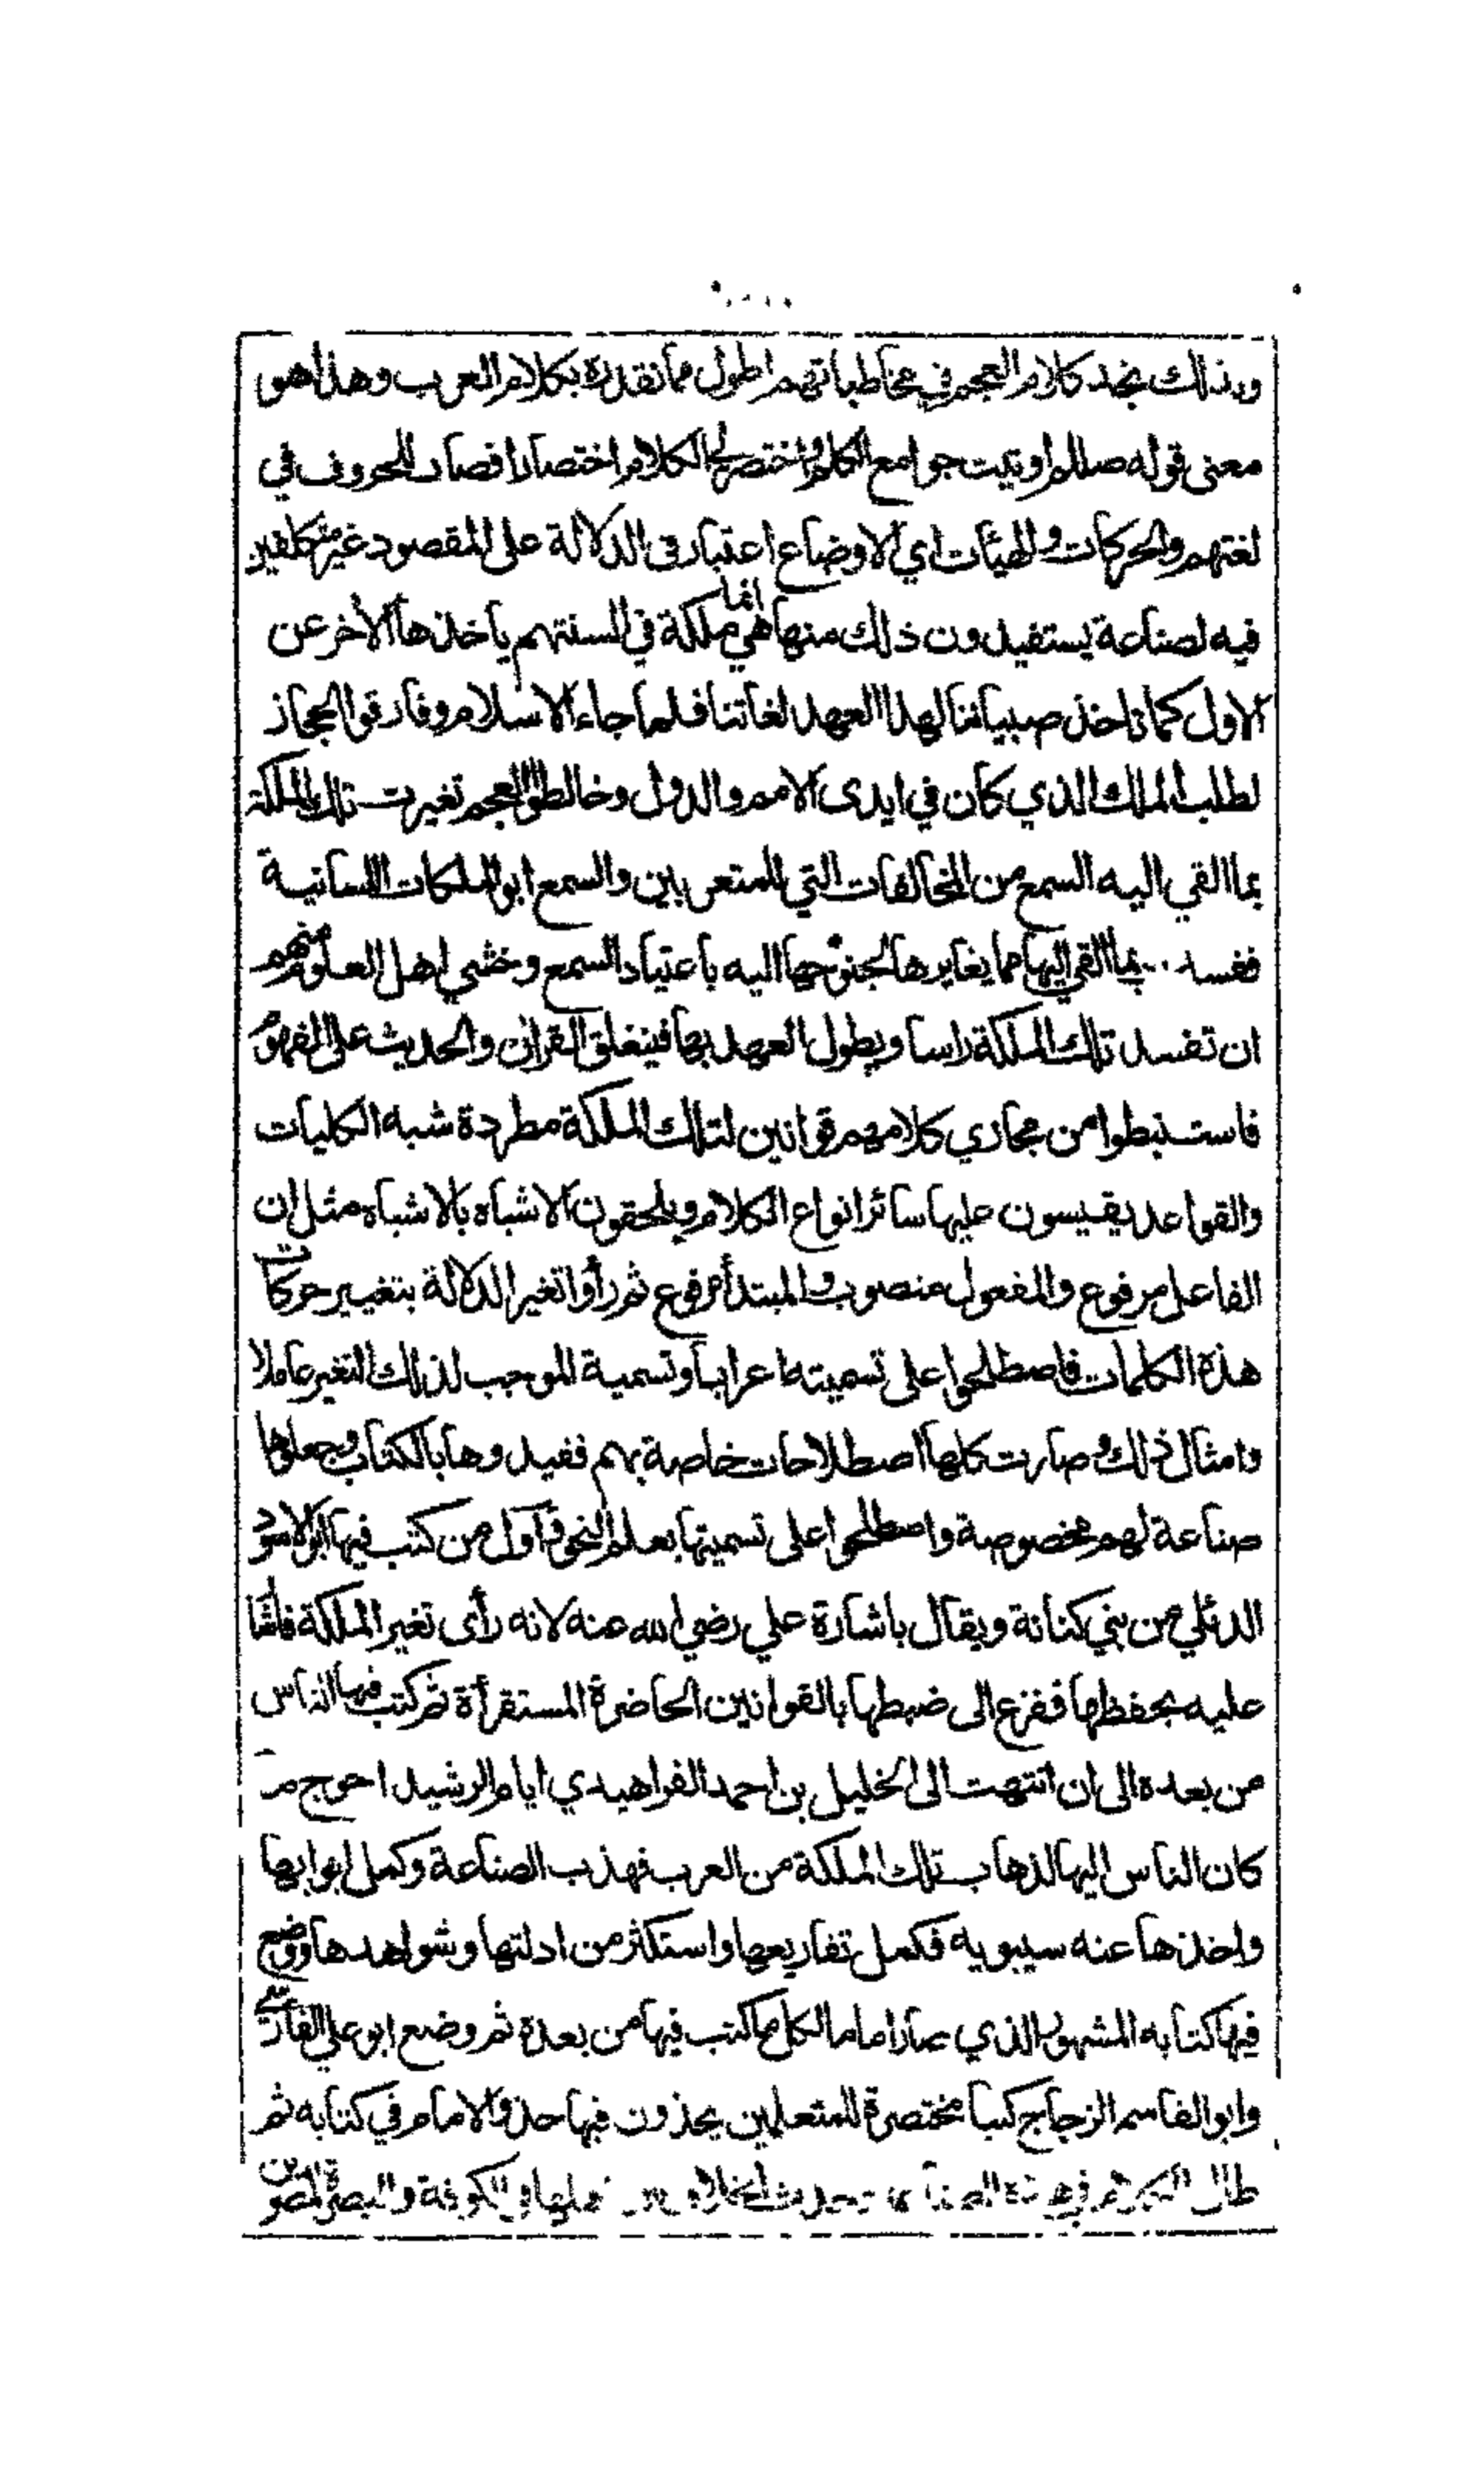 ولذلك نجد كلام العجم في مخاطباتهم اطول مما نقدره بكلام العرب وهذا هو
معنى قوله صللم اوتيت جوامع الكلم واختصر لي الكلام اختصارا فصار للحروف في
لغتهم والحركات والهيئات اي الاوضاع اعتبار في الدلالة على المقصود غير متكلفين
فيه لصناعة يستفيدون ذلك منها انما هي ملكة في السنتهم ياخذها الآخر عن
الاول كما تاخذ صبياننا لهذا العهد لغاتنا فلما جاء الاسلام وفارقوا الحجاز
لطلب الملك الذي كان في ايدى الامم والدول وخالطوا العجم تغيرت تلك الملكة
بما القي اليه السمع من المخالفات التي للمتعربين والسمع ابو الملكات اللسانية
ففسد بما القي اليها مما يغايرها لجنوحها اليه باعتياد السمع وخشي اهل العلوم منهم
ان تفسد تلك الملكة راسا ويطول العهد بها فينغلق القرآن والحديث على المفهوم
فاستنبطوا من مجاري كلامهم قوانين لتلك الملكة مطردة شبه الكليات
والقواعد يقيسون عليها سائر انواع الكلام ويلحقون الاشباه بالاشباه مثل ان
الفاعل مرفوع والمفعول منصوب والمبتدأ مرفوع ثم رأوا تغير الدلالة بتغيير حركات
هذه الكلمات فاصطلحوا على تسميته اعرابا وتسمية الموجب لذلك التغير عاملا
وامثال ذلك وصارت كلها اصطلاحات خاصة بهم فقيدوها بالكتاب وجعلوها
صناعة لهم مخصوصة واصطلحوا على تسميتها بعلم النحو واول من كتب فيها ابو الاسود
الدئلي من بني كنانة ويقال باشارة علي رضي الله عنه لانه رأى تغير الملكة فاشا
عليه بحفظها ففزع الى ضبطها بالقوانين الحاضرة المستقرأة ثم كتب فيها الناس
من بعده الى ان انتهت الى الخليل بن احمد الفراهيدي ايام الرشيد احوج م
كان الناس اليها لذهاب تلك الملكة من العرب فهذب الصناعة وكمل ابوابها
واخذها عنه سيبويه فكمل تفاريعها واستكثر من ادلتها وشواهدها ووضع
فيها كتابه المشهور الذي صار اماما لكل ما كتب فيها من بعده ثم وضع ابو علي الفارسي
وابو القاسم الزجاج كتبا مختصرة للمتعلمين يحذون فيها حذو الامام في كتابه ثم
طال الكلام في هذه الصناعة وحدث الخلاف بين اهلها في الكوفة والبصرة المصرين